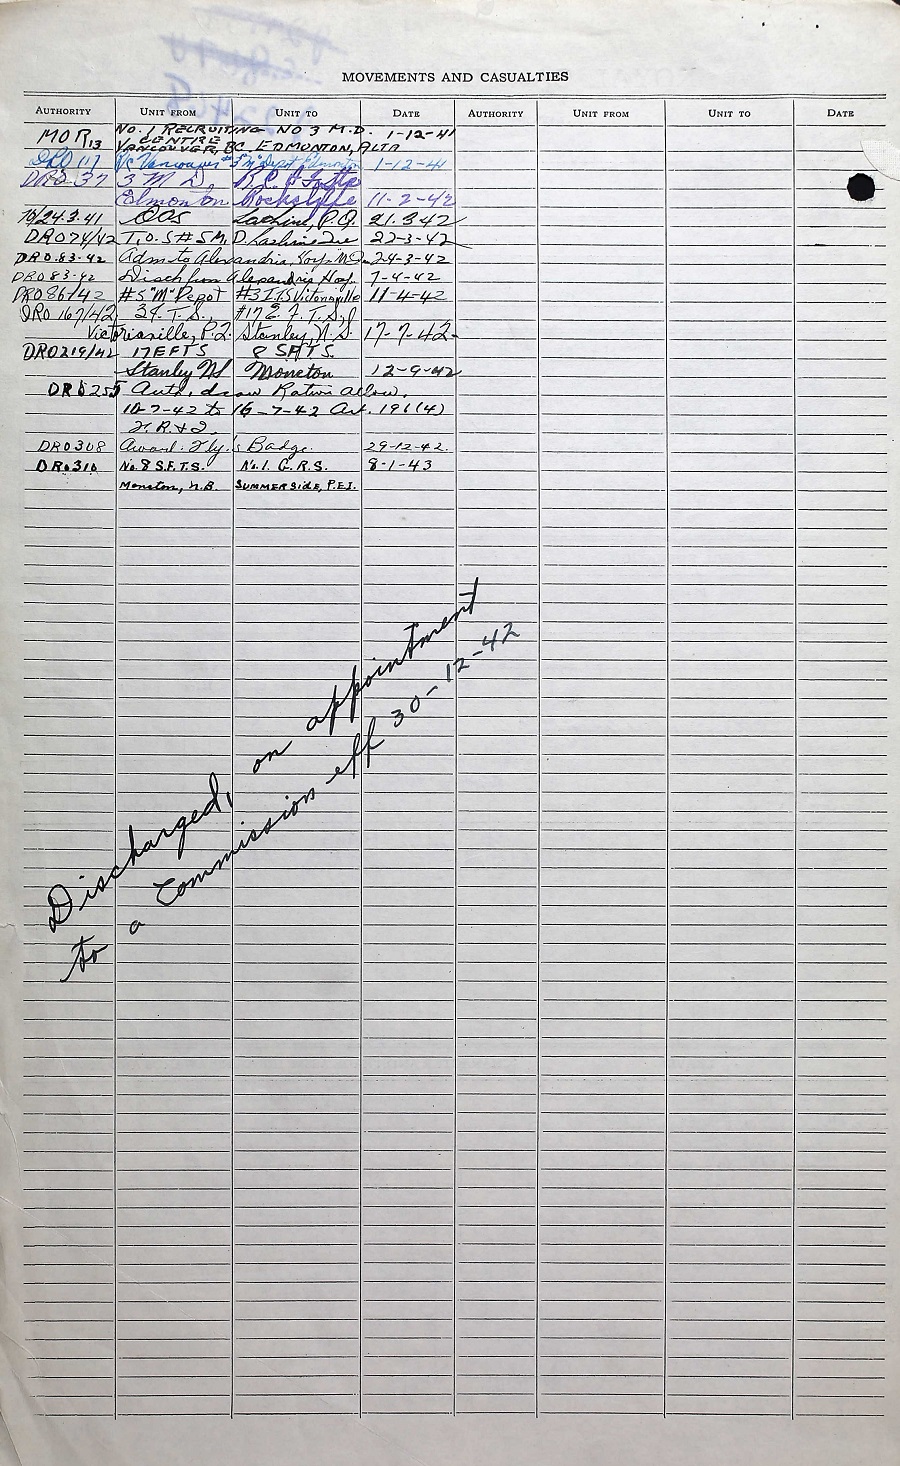 MOVEMENTS AND CASUALTIES
AUTHORITY UNIT FROM UNIT TO DATE AUTHORITY UNIT FROM UNIT TO DATE
MOR13 No. 1 RECRUITING NO 3 M.D. 1-12-41
CENTRE
VANCOUVER, BC. EDMONTON, ALTA
DRO 117 Rc Vancouver #3 "M" Depot Edmonton 1-12-41
DRO-37 3 M D,
Edmonton Rockcliffe 11-2-42
OOS Lachine, P.Q. 21.3.42
DRO 74/42 T.O.S # 5 M. D Lachine Que 22-3-42
DRO 83-42 Adm to Alexandria, Hosp. 24-3-42
DRO 83-42 Disch from Alexandria Hosp. 7-4-42
DRO 86/42 #5 "M" Depot #3 ITS Victoriaville 11-4-42
DRO 167/42 #17 E. F. T. S.,
Victoriaville, P.Q. Stanley, N.S. 17-7-42-
DRO219/42 17 EFTS 8 SFTS.
Stanley NS Moncton 12-9-42
DRO 255 Auth. draw Ration allow.
10-7-42 to 16-7-42 Art. 191(4)
F. R. & I.
DRO308 Award. Fly.'s Badge. 29-12-42.
DRO310 No. 8 S.F.T.S. No. 1. G.R.S. 8-1-43
Moncton, N.B. SUMMERSIDE, P.E.I.
Discharged, on appointment
to a Commission eff 30-12-42